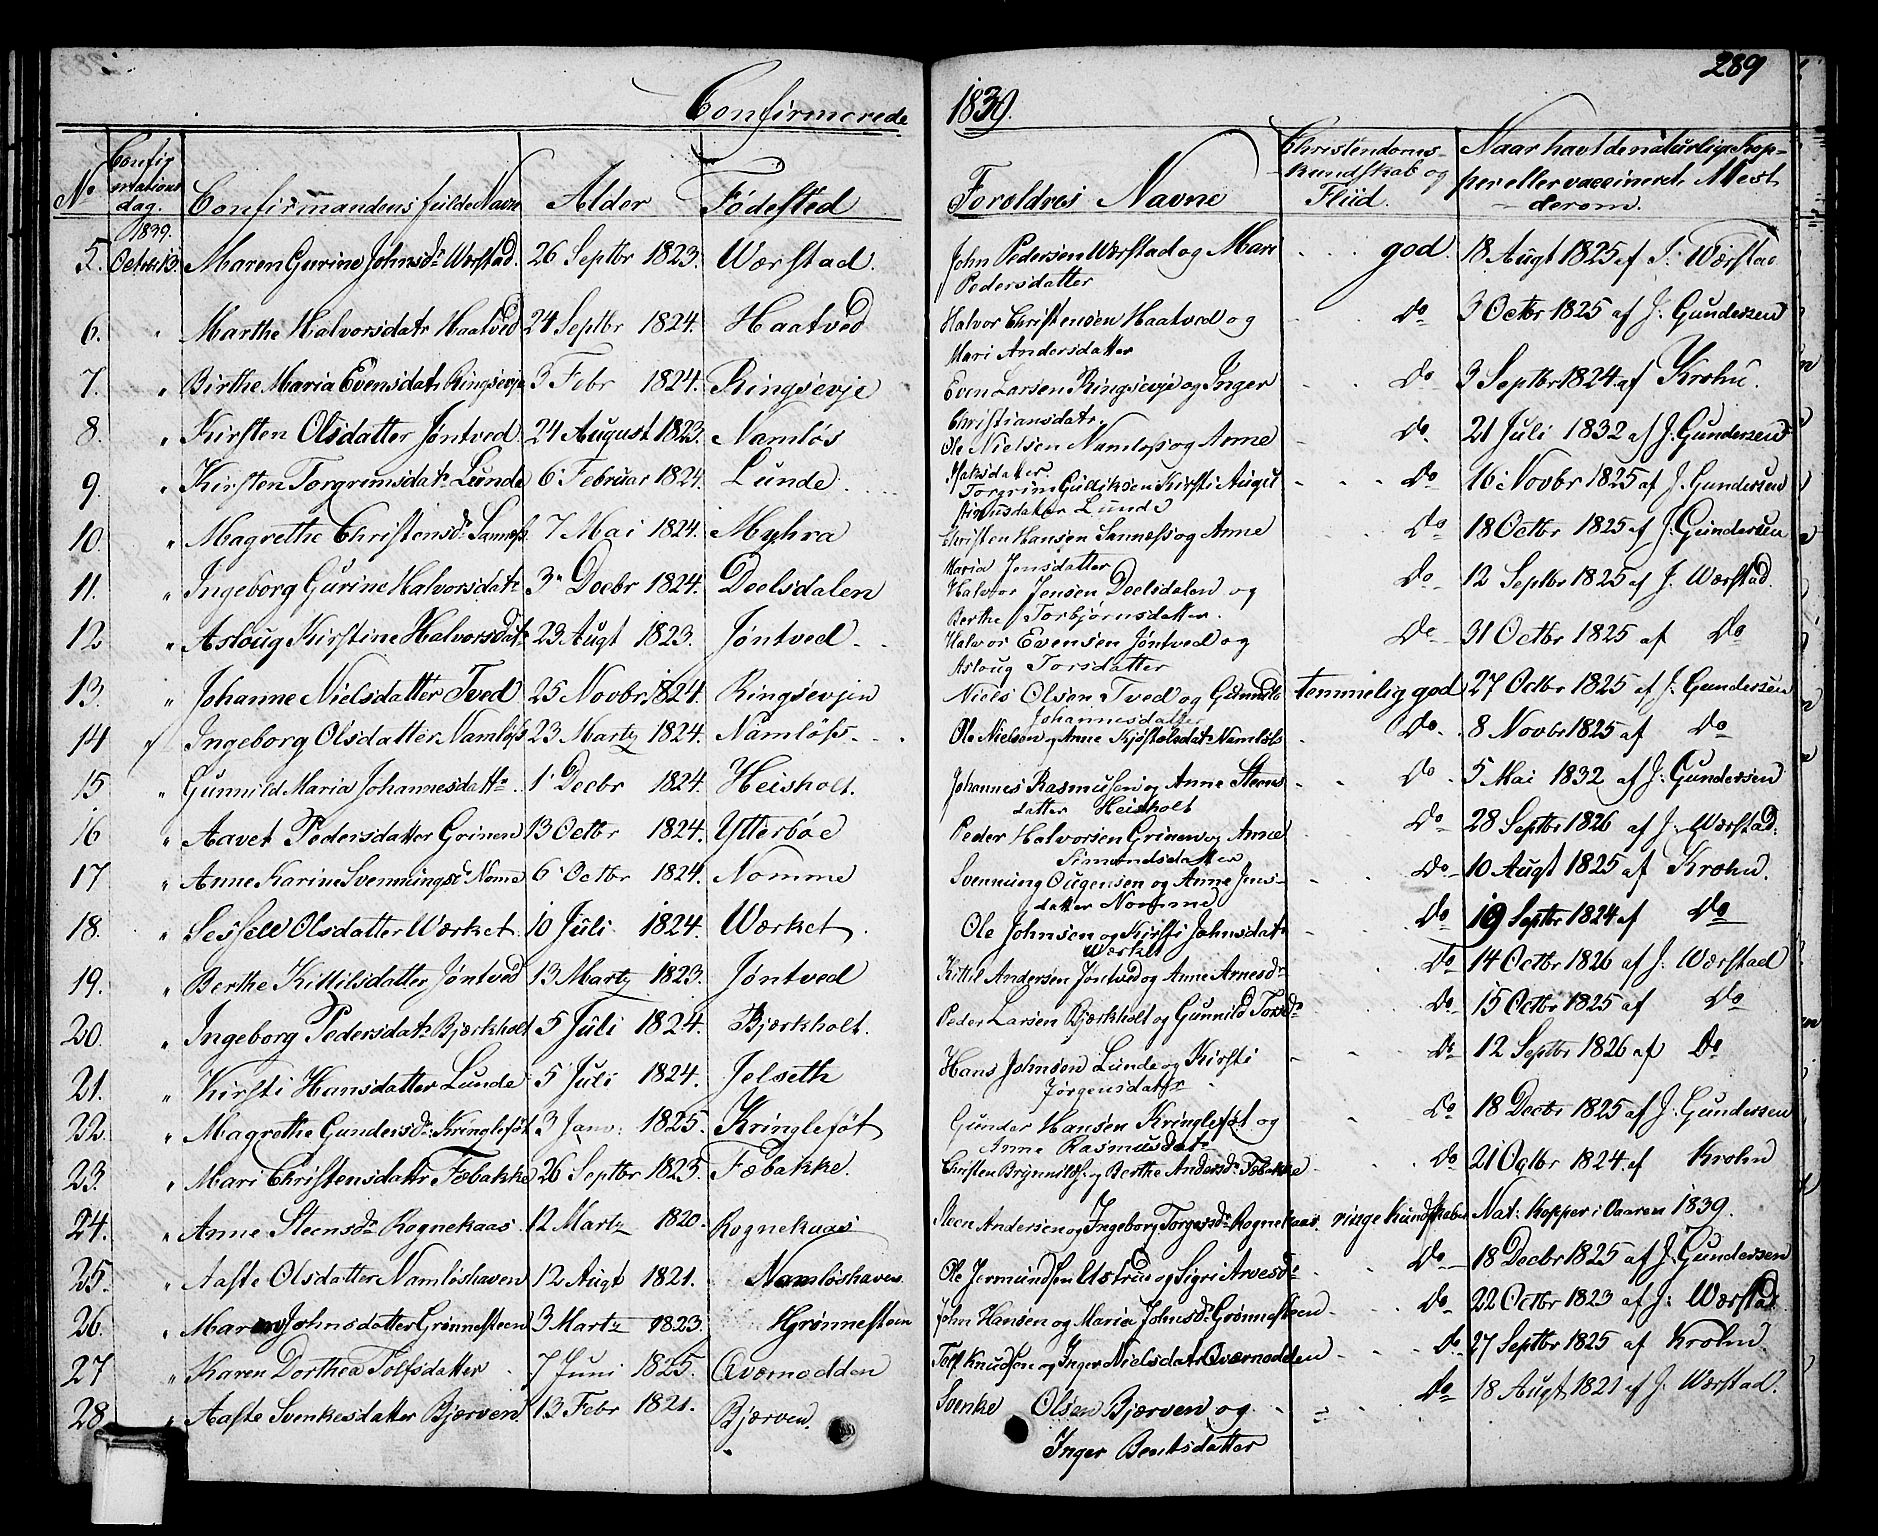 289
Confirmerede 1839.
No Confirmations dag. Confirmandens fulde Navn Alder Fødested Foreldres Navne Christendoms- kundskab og Fliid. Naar havt de naturlige Kopper eller vaccineret. Mest derom.
1839.
5. Octbr 13. Maren Gurine Johnsdr Wærstad. 26 Septbr 1823. Wærstad. John Pedersen Wærstad og Mari god. 18 Augt 1825 af J. Wærstad
Pedersdatter
6. " Marthe Halvorsdatr Haatved 24 Septbr 1824. Haatved Halvor Christensen Haatved og Do 3 Octbr 1825 af J. Gundersen
Mari Andersdatter
7. " Birthe Maria Evensdatr Ringsevje 3 Febr 1824. Ringsevje Even Larsen Ringsevje og Inger Do 3 Septbr 1824 af Krohn.
Christiansdatr.
8. " Kirsten Olsdatter Jøntved 24 August 1823. Namløs Ole Nielsen Namløss og Anne Do. 21 Juli 1832 af J. Gundersen
9. " Kirsten Torgrimsdatr Lunde 6 Februar 1824. Lunde Torgrim Gulliksen Kirsti Do 16 Novbr 1825 af J. Gundersen
Lunde
10. " Magrethe Christensdr Sannæss 7 Mai 1824. Myhra Christen Hansen Sannæss og Anne Do 18 Octbr 1825 af J. Gundersen
Maria Jensdatter
11. " Ingeborg Gurine Halvorsdatr 3 Decbr 1824. Deelsdalen Halvor Jensen Deelsdalen og Do 12 Septbr 1825 af J. Wærstad.
Berthe Torbjørnsdatter.
12 " Asloug Kirstine Halvorsdatr 23 Augt 1823. Jøntved Halvor Evensen Jøntved og Do 31 Octbr 1825 af Do
Asloug Torsdatter
13 " Johanne Nielsdatter Tved 25 Novbr 1824. Ringsevjen Niels Olsen Tved og Gunnild temmelig god 27 Octbr 1825 af J. Gundersen
Johannesdatter
14 Ingeborg Olsdatter Namløss 23 Martz 1824. Namløss Ole Nielsen og Anne Kjøstolsdatr Namløss Do 8 Novbr 1825 af Do
15 " Gunnild Maria Johannesdattr. 1 Decbr 1824. Heisholt. Johannes Rasmusen og Anne Steens Do 5 Mai 1832 af J. Gundersen
datter Heisholt
16 " Aavet Pedersdatter Grinen 13 Octbr 1824. Ytterbøe Peder Halvorsen Grinen og Anne Do 28 Septbr 1826 af J. Wærstad.
Simonsdatter
17 " Anne Karine Svenningsdr Nomme 6 Octbr 1824. Nomme Svenning Ougensen og Anne Jens- Do 10 Augt 1825 af Krohn.
datter Nomme
18. " Sessele Olsdatter Wærket. 10 Juli 1824. Wærket. Ole Johnsen og Kirsti Johnsdatr Do 19 Septbr 1824 af Do
Wærket
19. " Berthe Kittilsdatter Jøntved 13 Martz 1823. Jøntved Kittil Andersen Jøntved og Anne Arnesdr Do 14 Octbr 1826 af J. Wærstad
20. " Ingeborg Pedersdatr Bjærkholt 5 Juli 1824. Bjærkholt. Peder Larsen Bjærkholt og Gunnild Torsdr Do 15 Octbr 1825 af Do
21. " Kirsti Hansdatter Lunde 5 Juli 1824. Jelseth Hans Johnsen Lunde og Kirsti Do 12 Septbr 1826 af Do
Jørgensdatr
22. " Magrethe Gundersdr Kringleføt 3 Janv: 1825. Kringleføt Gunder Hansen Kringleføt og Do 18 Decbr 1825 af J. Gundersen
Anne Rasmusdatr
23. " Mari Christensdattr Fæbakke 26 Septbr 1823. Fæbakke. Christen Brynnilds. og Berthe Andersdr Fæbakke Do 21 Octbr 1824 af Krohn
24. " Anne Steensdr Rognekaas. 12 Martz 1820. Rognekaas Steen Andersen og Ingeborg Torgersdr Rognekaas. ringe kundskaber Nat: Kopper i Vaaren 1839.
25. " Aaste Olsdatter Namløshaven 12 Augt 1821. Namløshaven Ole Jermundsen Ustrud og Sigri Arvesdr Do 18 Decbr 1825 af J. Gundersen
26. " Maren Johnsdatter Grønnesteen 3 Martz 1823. Grønnesteen John Hansen og Maria Johnsdr Grønnesteen Do 22 Octbr 1823 af J. Wærstad
27 " Karen Dorthea Tolfsdatter 7 Juni 1825. Oværnodden Tolf Knudsen og Inger Nielsdatr Oværnodden Do 27 Septbr 1825 af Krohn.
28 " Aaste Svenkesdatter Bjærven 13 Febr 1821. Bjærven. Svenke Olsen Bjærven og Do 18 Augt 1821 af J. Wærstad.
Inger Bentsdatter